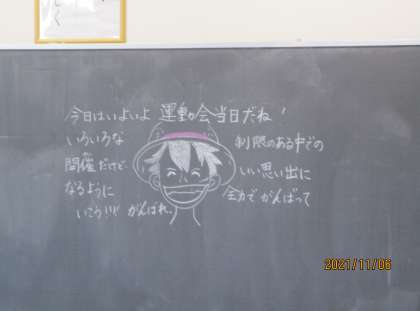 今日はいよいよ 運動会当日だね!
いろいろな 制限のある中での
開催だけど、 いい思い出に
なるように 全力で がんばって
いこう!!! がんばれ。
2021/11/06